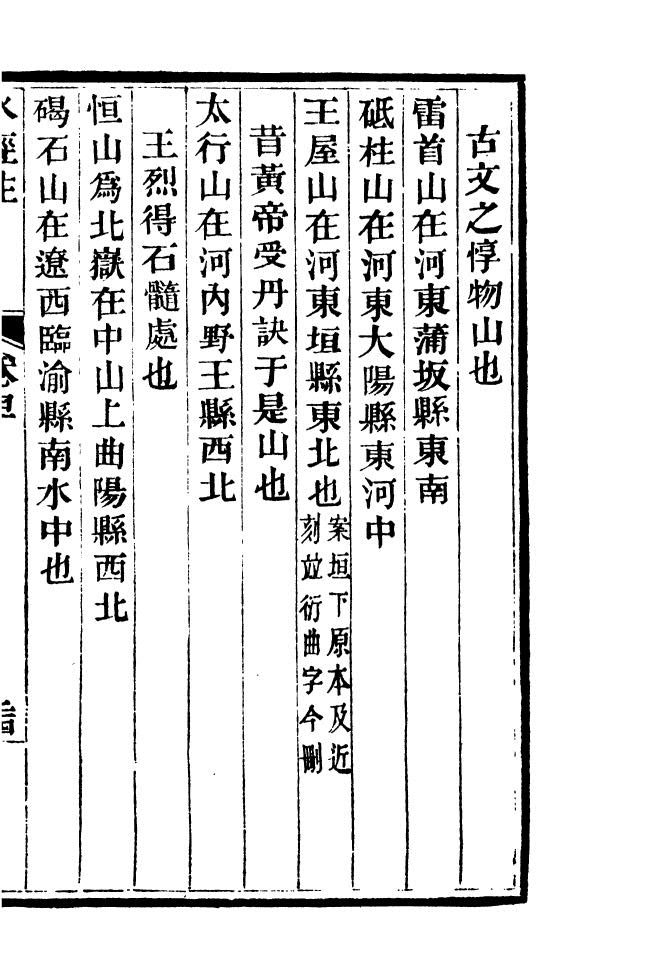 古文之惇物山也
雷首山在河東蒲坂縣東南
砥柱山在河東大陽縣東河中
王屋山在河東垣縣東北也案垣下原本及近
刻竝衍曲字今刪
昔黃帝受丹訣于是山也
太行山在河內野王縣西北
王烈得石髓處也
恒山爲北嶽在中山上曲陽縣西北
碣石山在遼西臨渝縣南水中也
水經注